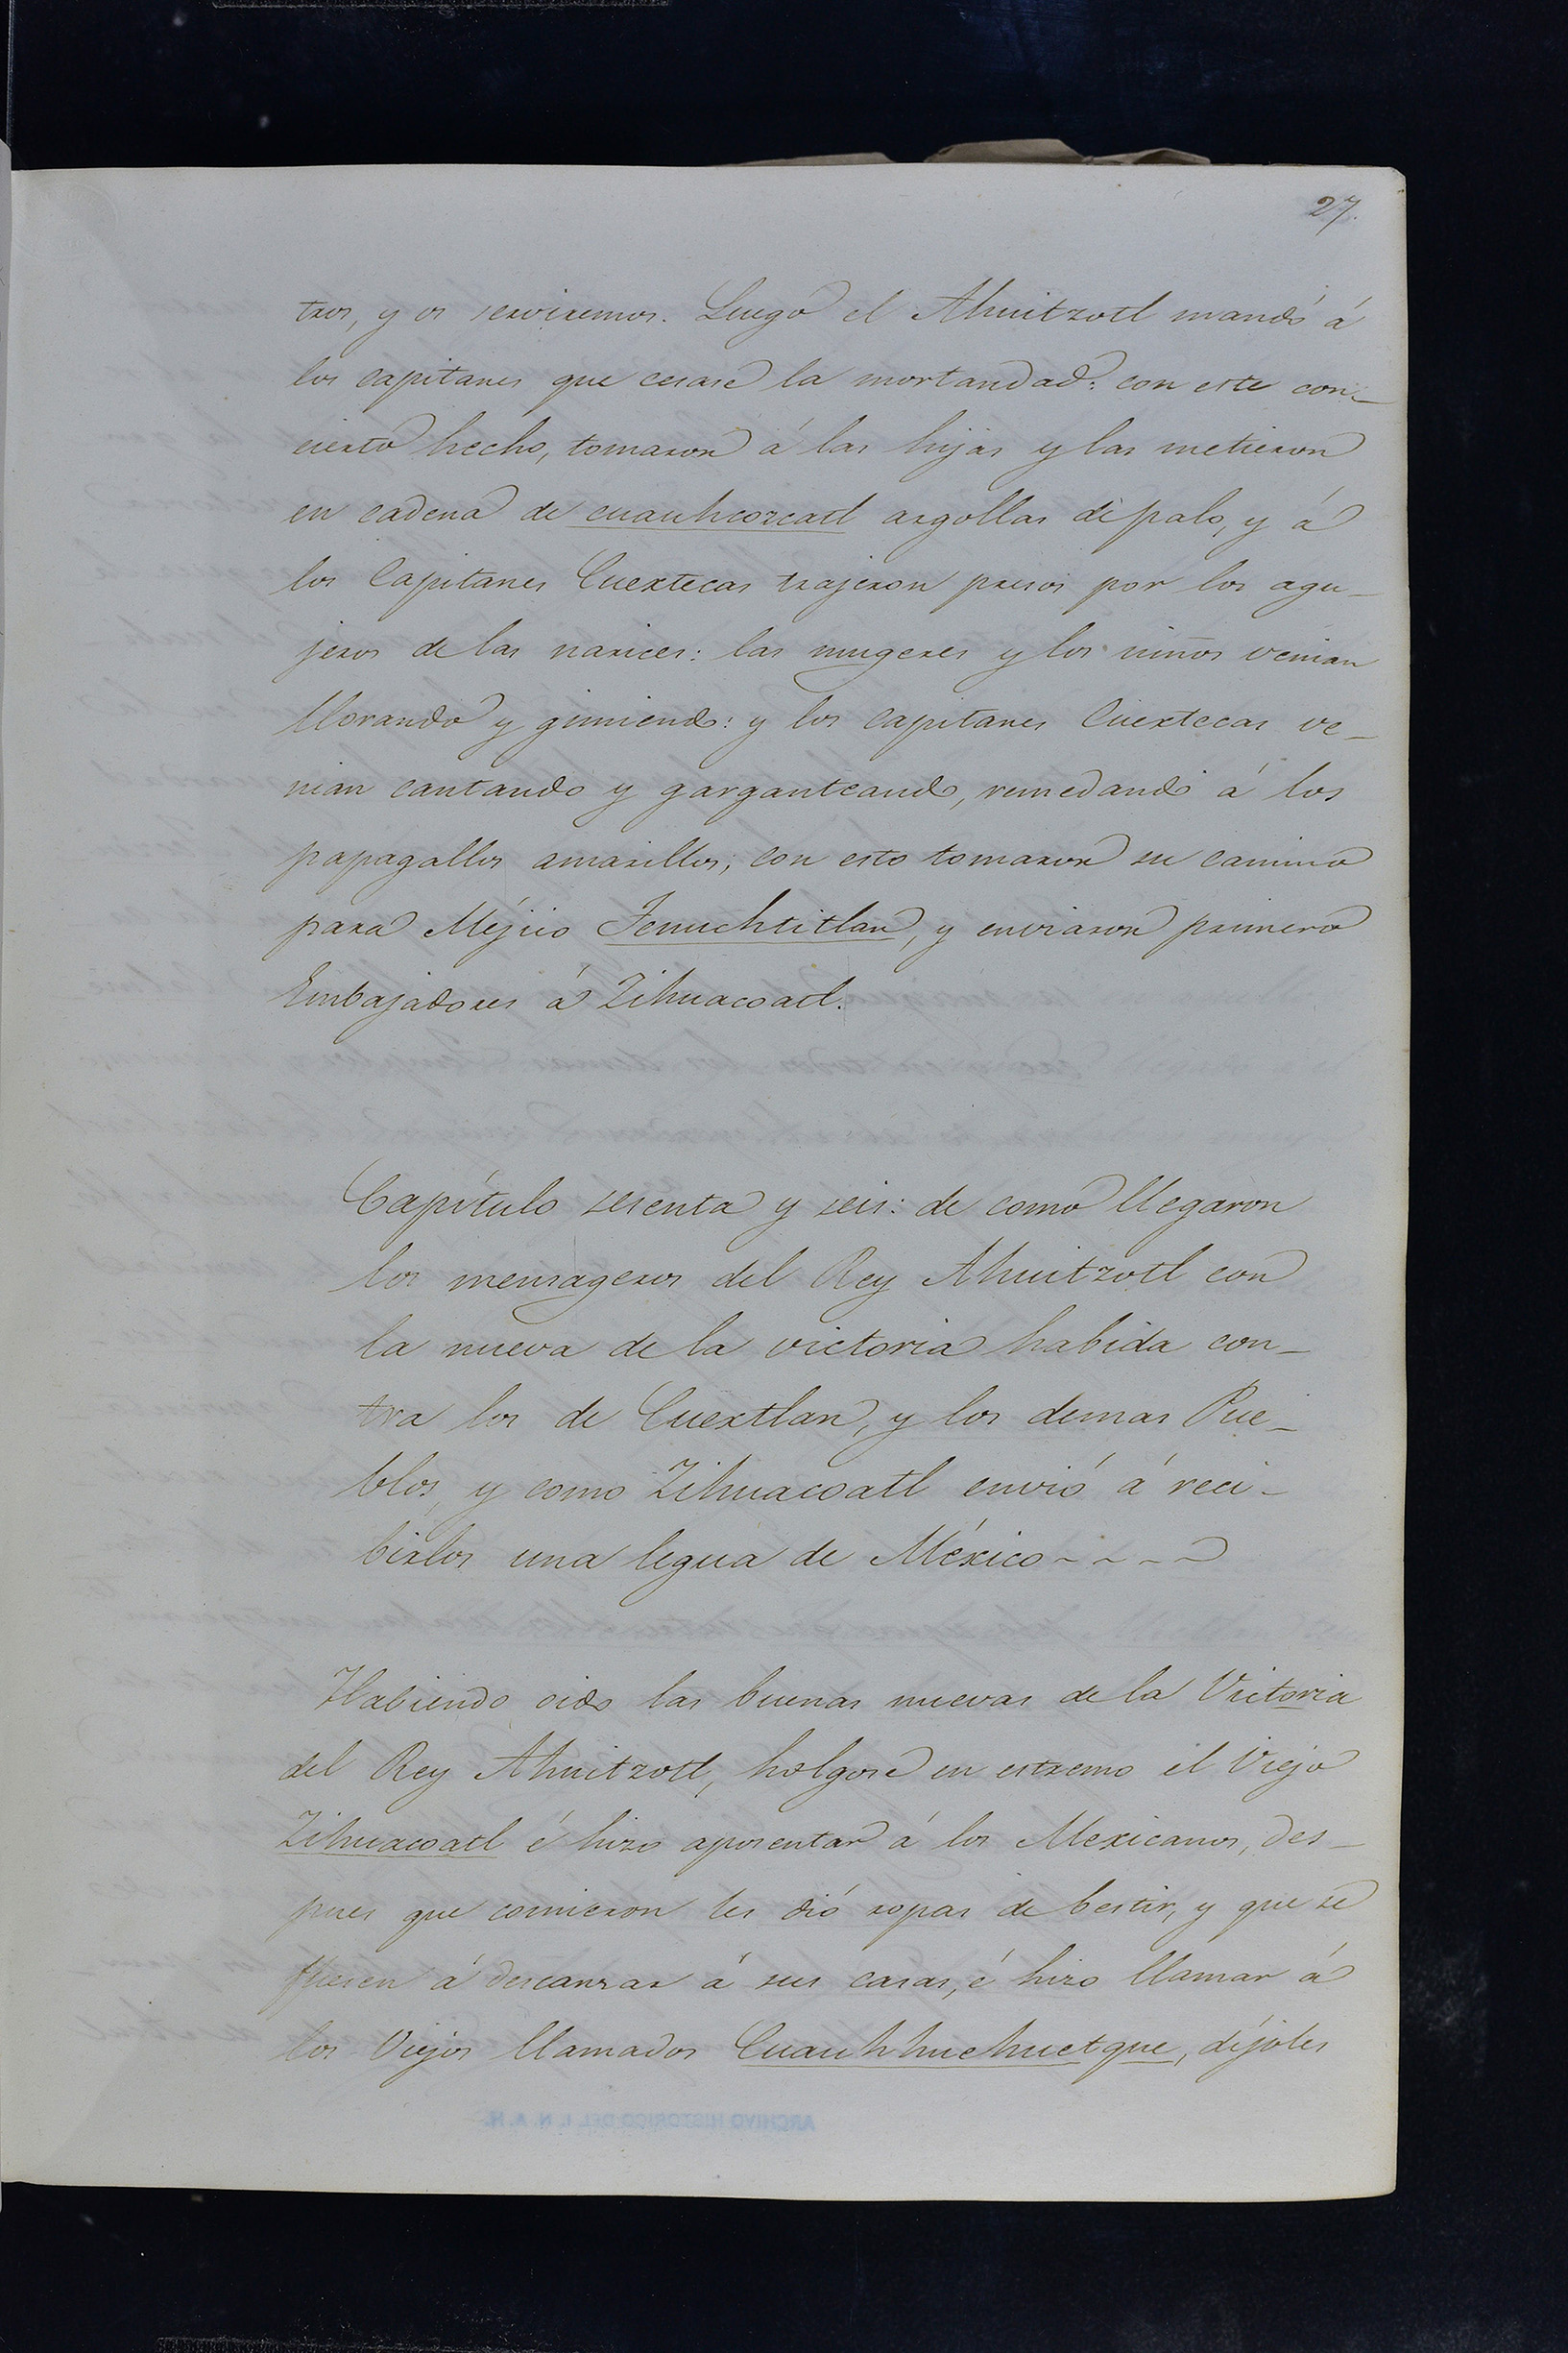 27.
tros, y os serviremos. Luego el Ahuitzotl mandó á
los capitanes que cesase la mortandad: con este con-
cierto hecho, tomaron á las hijas y las metieron
en cadena de cuauhcozcatl argollas de palo, y á
los Capitanes Cuextecas trajeron presos por los agu-
jeros de las narices: las mugeres y los niños venian
llorando y gimiendo: y los capitanes Cuextecas ve-
nian cantando y garganteando, remedando á los
papagallos amarillos; con esto tomaron su camino
para Méjico Tenuchtitlan, y enviaron primero
Embajadores á Zihuacoatl.
Capítulo sesenta y seis: de como llegaron
los mensageros del Rey Ahuitzotl con
la nueva de la victoria habida con-
tra los de Cuextlan, y los demas Pue-
blos, y como Zihuacoatl envió á reci-
birlos una legua de México ~ ~ ~ ~
Habiendo oido las buenas nuevas de la Victoria
del Rey Ahuitzotl, holgose en estremo el Viejo
Zihuacoatl é hizo aposentar á los Mexicanos, des-
pues que comieron les dió ropas de bestir, y que se
fuesen á descanzar á sus casas, é hizo llamar á
los Viejos llamados Cuauhhuehuetque, díjoles
ARCHIVO HISTORICO DEL I. N. A. H.